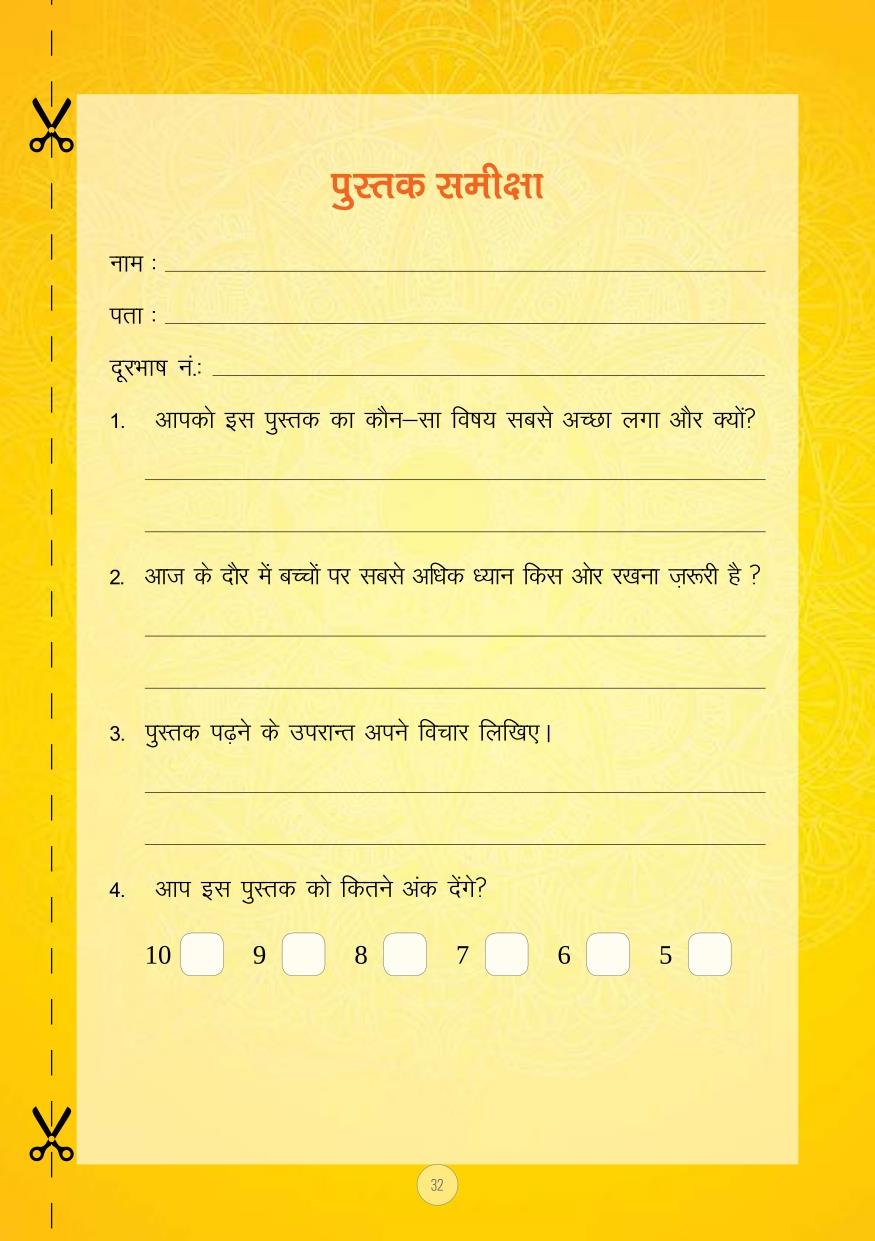 पुस्तक समीक्षा
नाम :
पता :
दूरभाष नं.:
1. आपको इस पुस्तक का कौन–सा विषय सबसे अच्छा लगा और क्यों?
2. आज के दौर में बच्चों पर सबसे अधिक ध्यान किस ओर रखना ज़रूरी है ?
3. पुस्तक पढ़ने के उपरान्त अपने विचार लिखिए।
4. आप इस पुस्तक को कितने अंक देंगे?
10 9 8 7 6 5
32